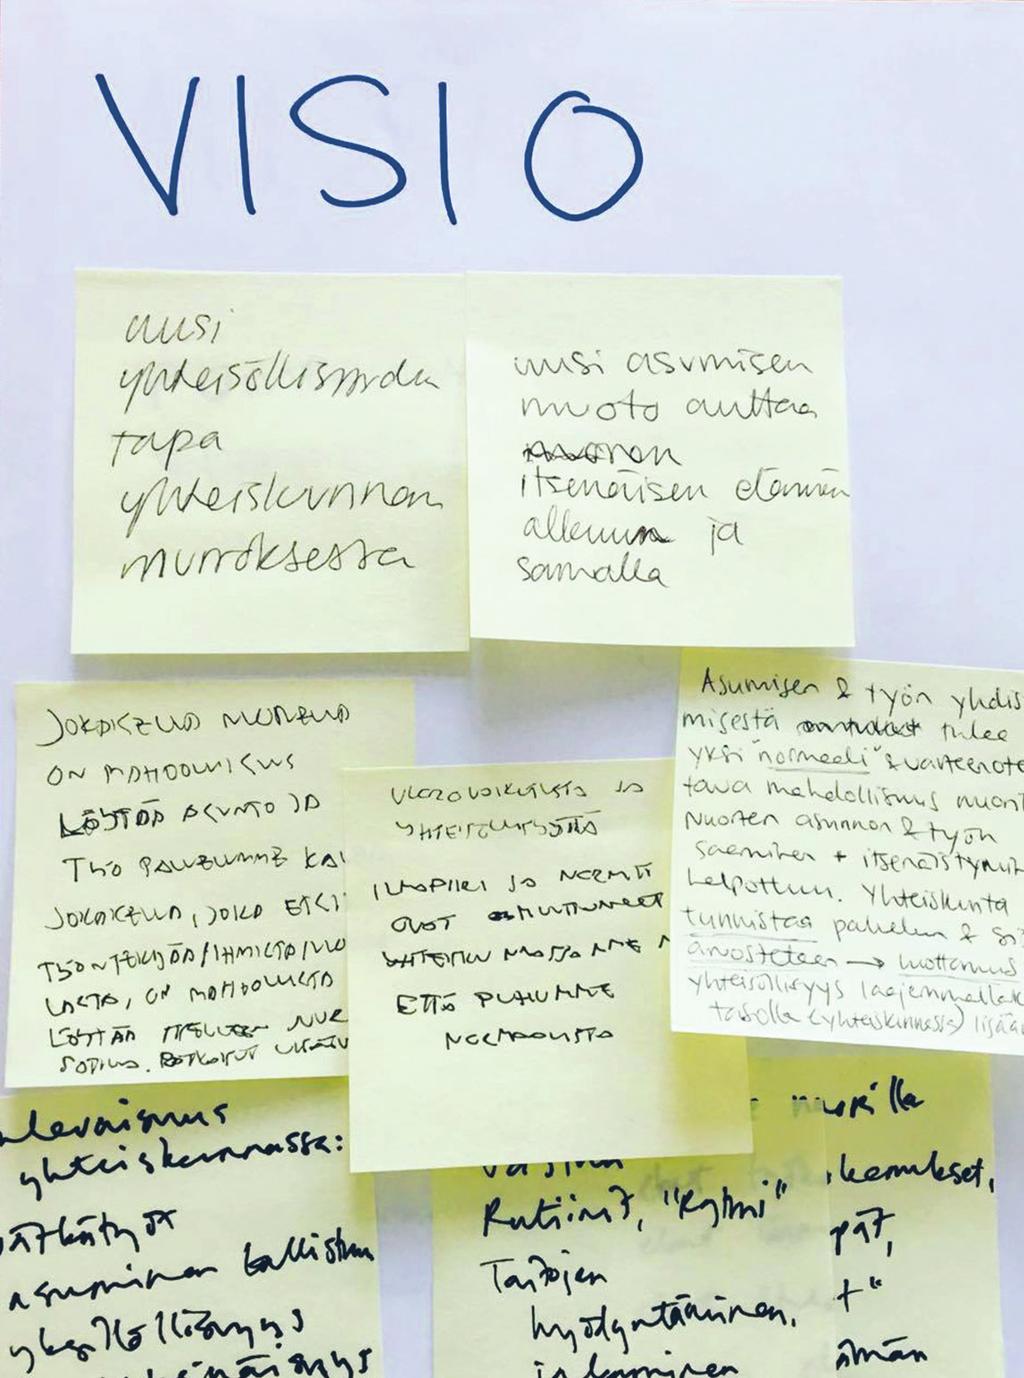 VISIO
uusi
yhteisöllisyyden
tapa
yhteiskunnan
murroksessa
uusi asumisen
muoto auttaa
nuoren
itsenäisen elämän
alkuun ja
samalla
JOKAISELLA NUORELLA
ON MAHDOLLISUUS
LÖYTÄÄ ASUNTO JA
TYÖ
JOKAISELLA, JOKA ETSI
TYÖNTEKIJÄÄ/IHMISTÄ/
ON MAHDOLLISTA
LÖYTÄÄ ITSELLEEN
VUOROVAIKUTUSTA JA
YHTEISTYÖTÄ
ILMAPIIRI JA NORMIT
OVAT MUUTTUNEET
YHTEISKUNNASSAMME
ETTÄ PUHUMME
NORMAALISTA
Asumisen & työn yhdis
misestä tulee
yksi "normaali" & varteenote
tava mahdollisuus nuori
Nuorten asunnon & työn
saaminen + itsenäistymin
helpottuu. Yhteiskunta
tunnistaa palvelun &
arvostetaan → luottamus
yhteisöllisyys laajemmallak
tasolla (yhteiskunnassa) lisää
ulevaisuus
yhteiskunnassa:
pätkätyöt
asuminen kallistuu
yksilöllisyys
nuorilla
Rutiinit, "Rytmi"
kemukset,
pät,
Taitojen
t"
hyödyntäminen,
ämän